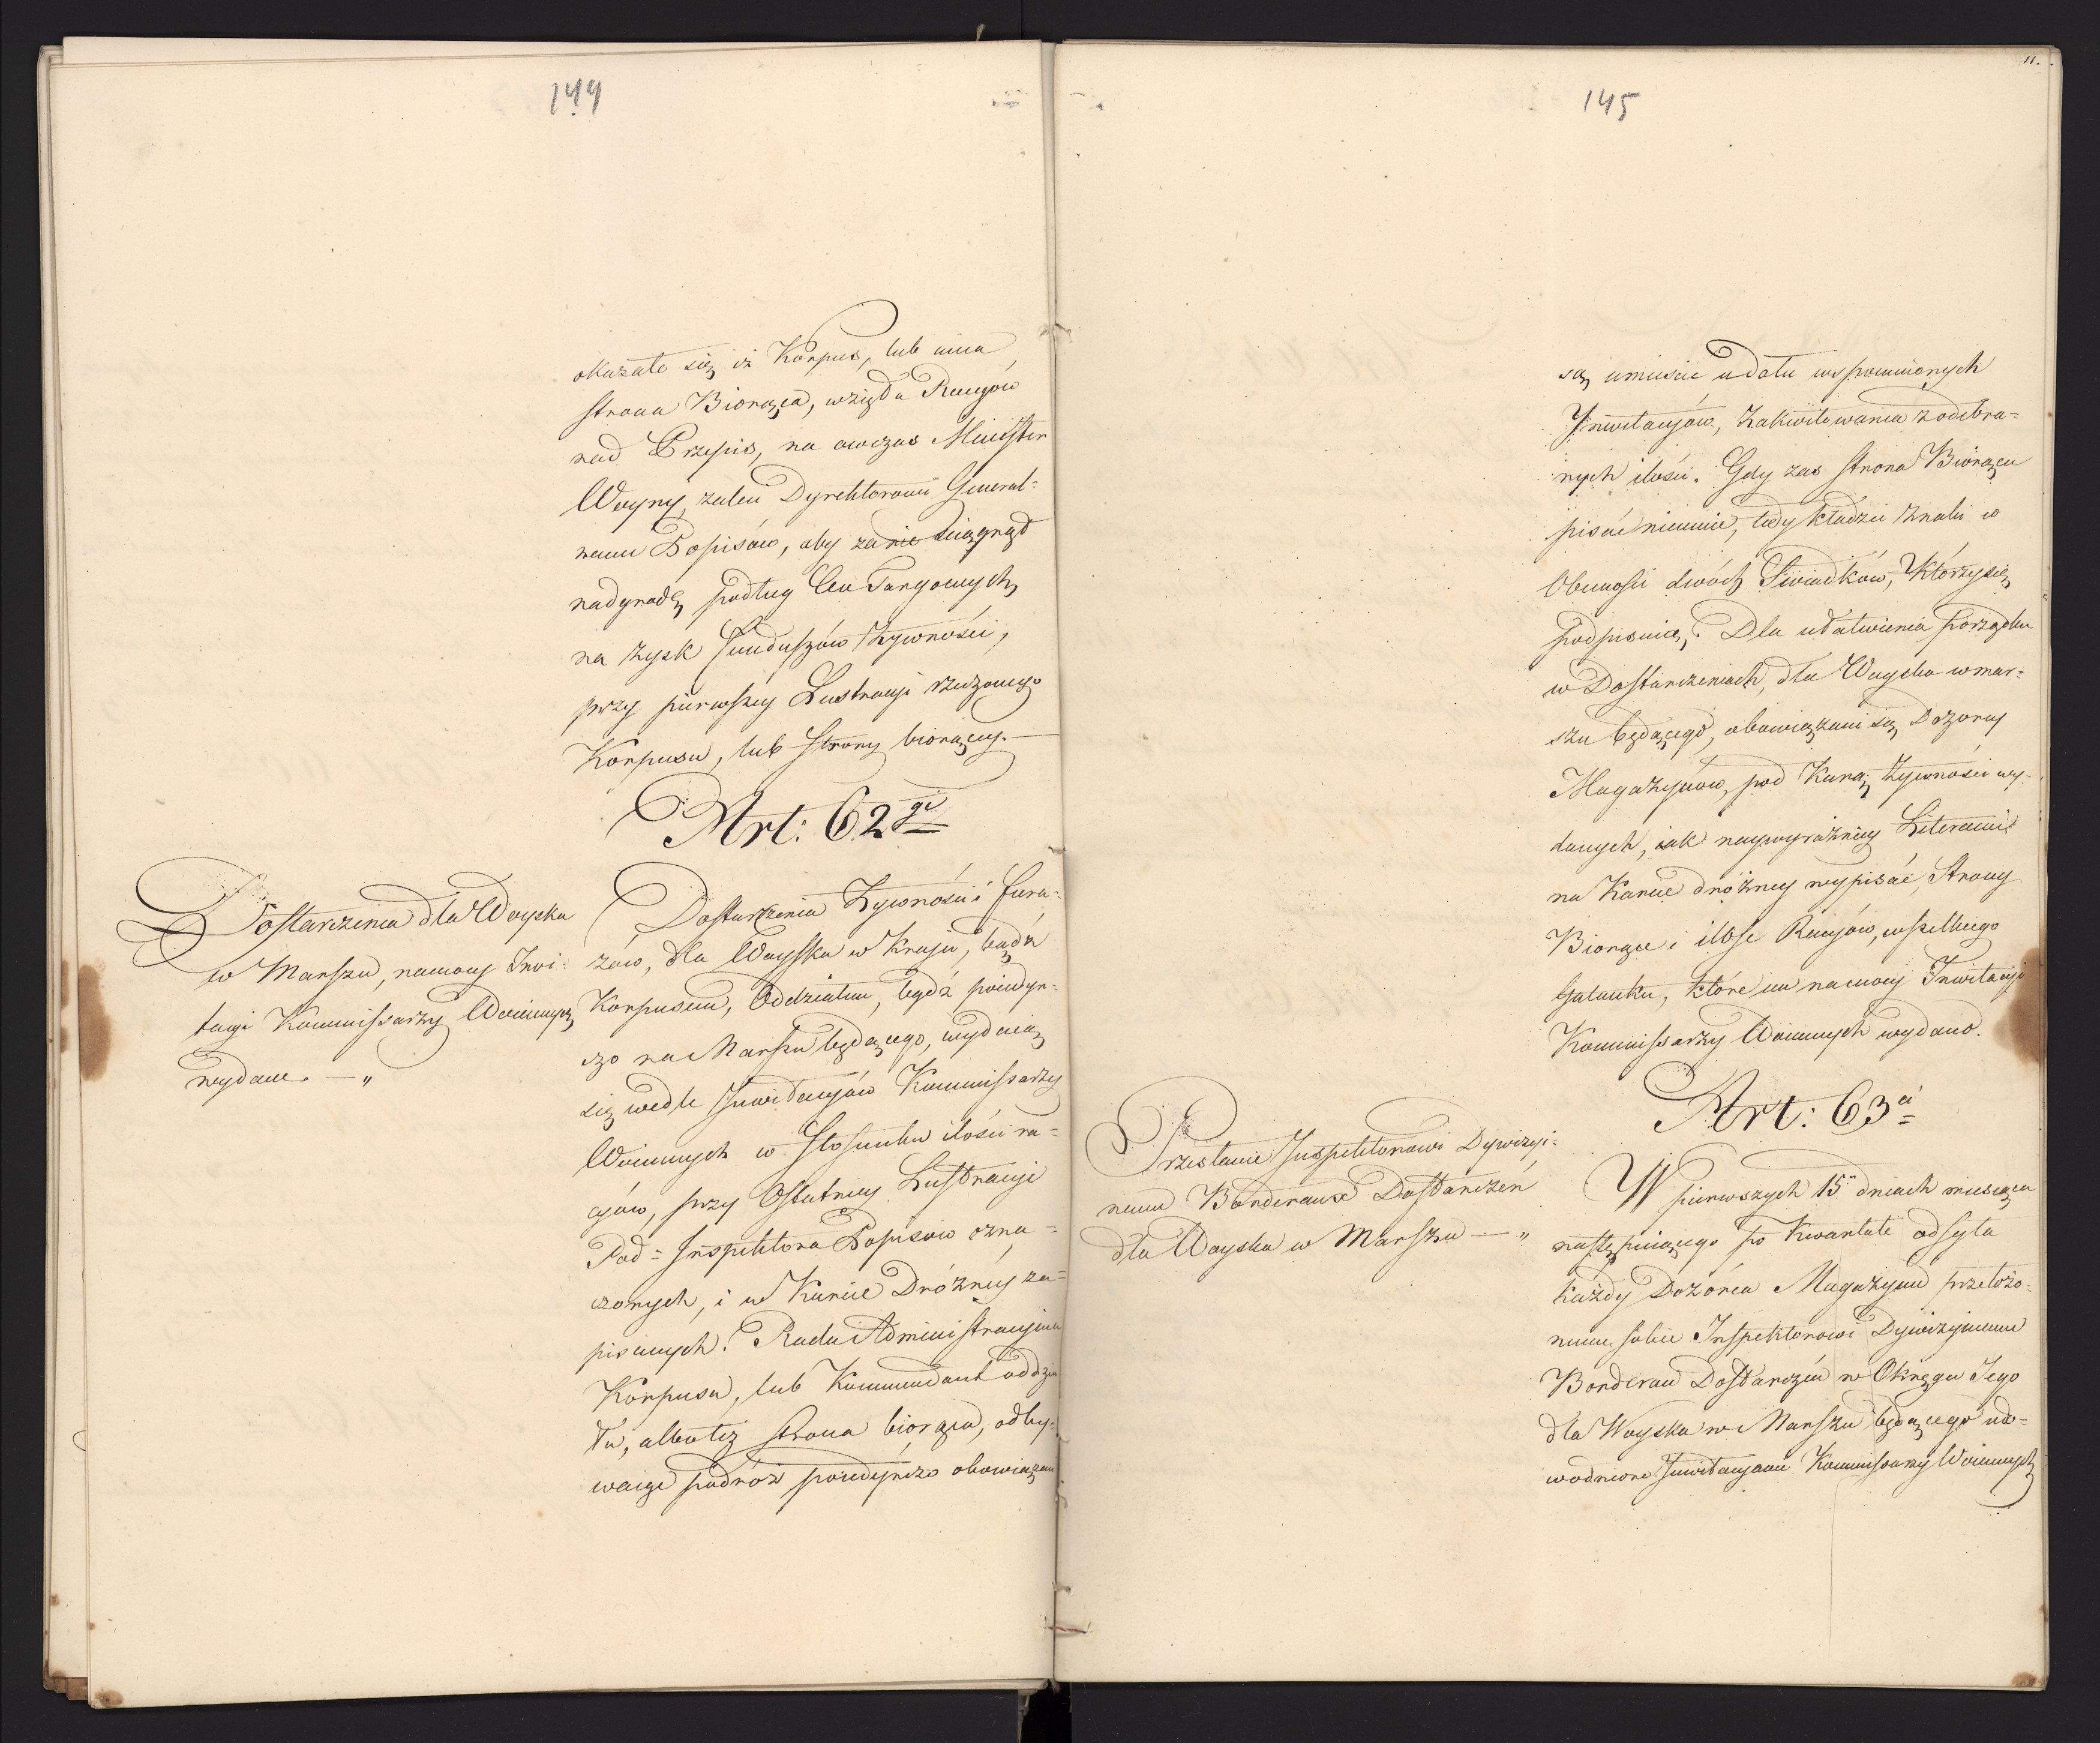 144
okazało się iż Korpus, lub inna
strona Biorąca, wzięła Racyów
nad Przepis, na owczas Minister
Woyny, zaleci Dyrektorowi General-
nemu Popisów, aby za nie ściągnął
nadgrodę podług Cen Targowych
na zysk funduszów Żywności,
przy pierwszey Lustracyi rzeczonego
Korpusu, lub strony biorącey.—
Art: 62gi
Dostarczenia dla Woyska
w Marszu, na mocy Inwi-
tacyi Kommissarzy Woiennych
wydane. — „
Dostarczenia Żywności i fura-
żów, dla Woyska w kraju, bądź
Korpusem, Oddziałem, bądź poiedyn-
czo na Marszu będącego, wydaią
się wedle Inwitacyów Kommissarzy
Woiennych w Stosunku ilości ra-
cyów, przy Ostatniey Lustracyi
Pod-Inspektora Popisów ozna-
czonych, i w Karcie Dróżney za-
pisanych. Rada Administracyina
Korpusu, lub Kommendant oddzia
łu, albo też strona biorąca, odby-
waiąc podróż poiedyńczo obowiązani
11.
145
są umieścić u dołu wspomnionych
Inwitacyów, Zakwitowania z odebra-
nych ilości. Gdy zaś strona Biorąca
pisać nieumie, tedy kładzie znaki w
Obecności dwóch Świadków, Którzy się
podpisuią. Dla ułatwienia porządku
w Dostarczeniach, dla Woyska w mar-
szu będącego, obowiązani są Dozorcy
Magazynów, pod Karą Żywności wy-
danych, iak naywyraźniey Literami
na Karcie dróżney wypisać, Strony
Biorące i ilość Racyów, wszelkiego
Gatunku, które im na mocy Inwitacyi
Kommissarzy Woiennych wydano.
Art: 63ci
Przesłanie Inspektorowi Dywizyi-
nemu Borderaux Dostarczeń
dla Woyska w Marszu — „
W pierwszych 15 dniach miesiąca
następuiącego po Kwartale odsyła
każdy Dozórca Magazynu przełożo-
nemu sobie Inspektorowi Dywizyinemu
Borderau Dostarczeń w Okręgu Jego
dla Woyska w Marszu będącego udo-
wodnione Inwitacyami Kommissarzy Woiennych